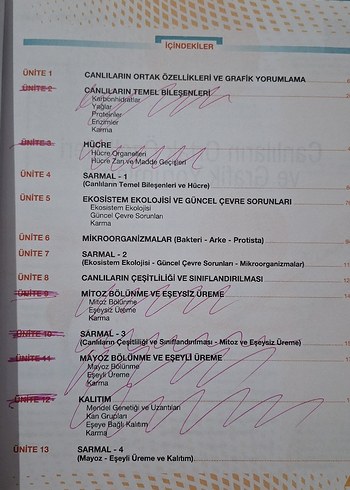 İÇİNDEKİLER
ÜNİTE 1 CANLILARIN ORTAK ÖZELLİKLERİ VE GRAFİK YORUMLAMA
ÜNİTE 2 CANLILARIN TEMEL BİLEŞENLERİ
Karbonhidratlar
Yağlar
Proteinler
Enzimler
Karma
ÜNİTE 3 HÜCRE
Hücre Organelleri
Hücre Zarı ve Madde Geçişleri
ÜNİTE 4 SARMAL - 1
(Canlıların Temel Bileşenleri ve Hücre)
ÜNİTE 5 EKOSİSTEM EKOLOJİSİ VE GÜNCEL ÇEVRE SORUNLARI
Ekosistem Ekolojisi
Güncel Çevre Sorunları
Karma
ÜNİTE 6 MİKROORGANİZMALAR (Bakteri - Arke - Protista)
ÜNİTE 7 SARMAL - 2
(Ekosistem Ekolojisi - Güncel Çevre Sorunları - Mikroorganizmalar)
ÜNİTE 8 CANLILARIN ÇEŞİTLİLİĞİ VE SINIFLANDIRILMASI
ÜNİTE 9 MİTOZ BÖLÜNME VE EŞEYSİZ ÜREME
Mitoz Bölünme
Eşeysiz Üreme
Karma
ÜNİTE 10 SARMAL - 3
(Canlıların Çeşitliliği ve Sınıflandırılması - Mitoz ve Eşeysiz Üreme)
ÜNİTE 11 MAYOZ BÖLÜNME VE EŞEYLİ ÜREME
Mayoz Bölünme
Eşeyli Üreme
Karma
ÜNİTE 12 KALITIM
Mendel Genetiği ve Uzantıları
Kan Grupları
Eşeye Bağlı Kalıtım
Karma
ÜNİTE 13 SARMAL - 4
(Mayoz - Eşeyli Üreme ve Kalıtım)